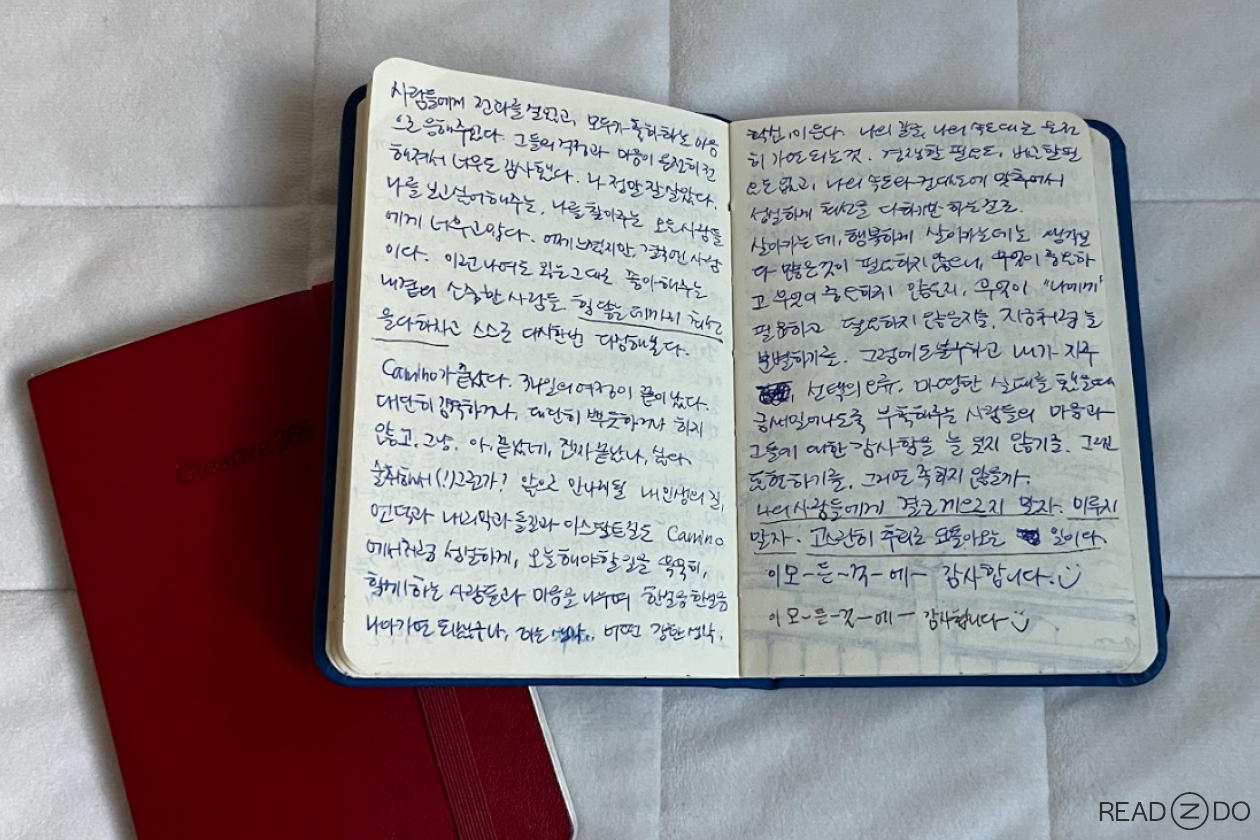 사람들에게 전화를 걸었고, 모두가 축하하는 마음
으로 응해주었다. 그들의 걱정과 마음이 온전히 전
해져서 너무도 감사했다. 나 정말 잘 살았다.
나를 보고싶어해주는, 나를 찾아주는 모든 사람들
에게 너무 고맙다. 어찌 느꼈지만, 결국엔 사람
이다. 이런 나여도 있는 그대로 좋아해주는
내 곁의 소중한 사람들. 힘 닿는 데까지 최선
을 다하자고 스스로 다시한번 다짐해본다.
Camino가 끝났다. 34일의 여정이 끝이 났다.
대단히 감격하거나, 대단히 뿌듯하거나 하지
않고, 그냥. 아, 끝났네, 진짜 끝났나, 싶다.
술취해서(!)그런가? 앞으로 안내될 내 인생의 길,
언덕과 내리막과 들길과 아스팔트길도 Camino
에서처럼 성실하게, 오늘 해야할 일을 묵묵히,
함께하는 사람들과 마음을 나누며 한걸음 한걸음
나아가면 되겠구나, 하는 어떤 강한
확신이 든다. 나의 길을, 나의 속도대로 온전
히 가면 되는 것. 경쟁할 필요도, 비교할 필
요도 없고, 나의 속도와 컨디션에 맞추어서
성실하게 최선을 다하기만 하는 걸로.
살아가는데, 행복하게 살아가는데는 생각보
다 많은 것이 필요하지 않으니, 무엇이 중요하
고 무엇이 중요하지 않은지, 무엇이 "나에게"
필요하고 필요하지 않은지를, 지금처럼 늘
분별하기를. 그럼에도 불구하고 내가 자주
선택의 오류, 마땅한 실패를 했을때
금새 일어나도록 부축해주는 사람들의 마음과
그들에 대한 감사함을 늘 잊지 않기를. 그리고
표현하기를. 그러면 족하지 않을까.
나의 사람들에게 결코 게으르지 말자. 미루지
말자. 고스란히 후회로 되돌아오는 일이다.
이 모-든-것-에- 감사합니다.
이 모-든-것-에- 감사합니다
Creative 365
READ Z DO